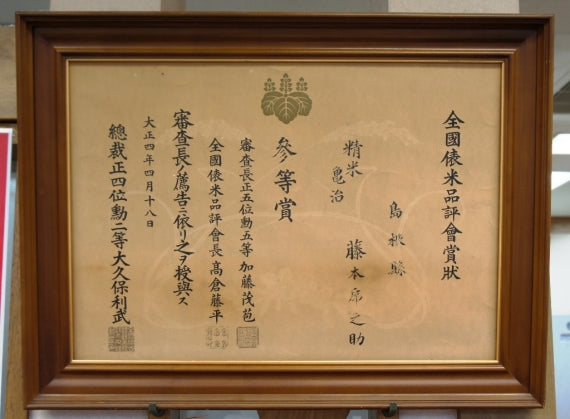 全國俵米品評會賞狀
島根縣
藤本﨑之助
精米
亀治
參等賞
審査長正五位勳五等加藤茂苞
全國俵米品評會長高倉藤平
審査長ノ薦告ニ依リ之ヲ授與ス
大正四年四月十八日
總裁正四位勳二等大久保利武